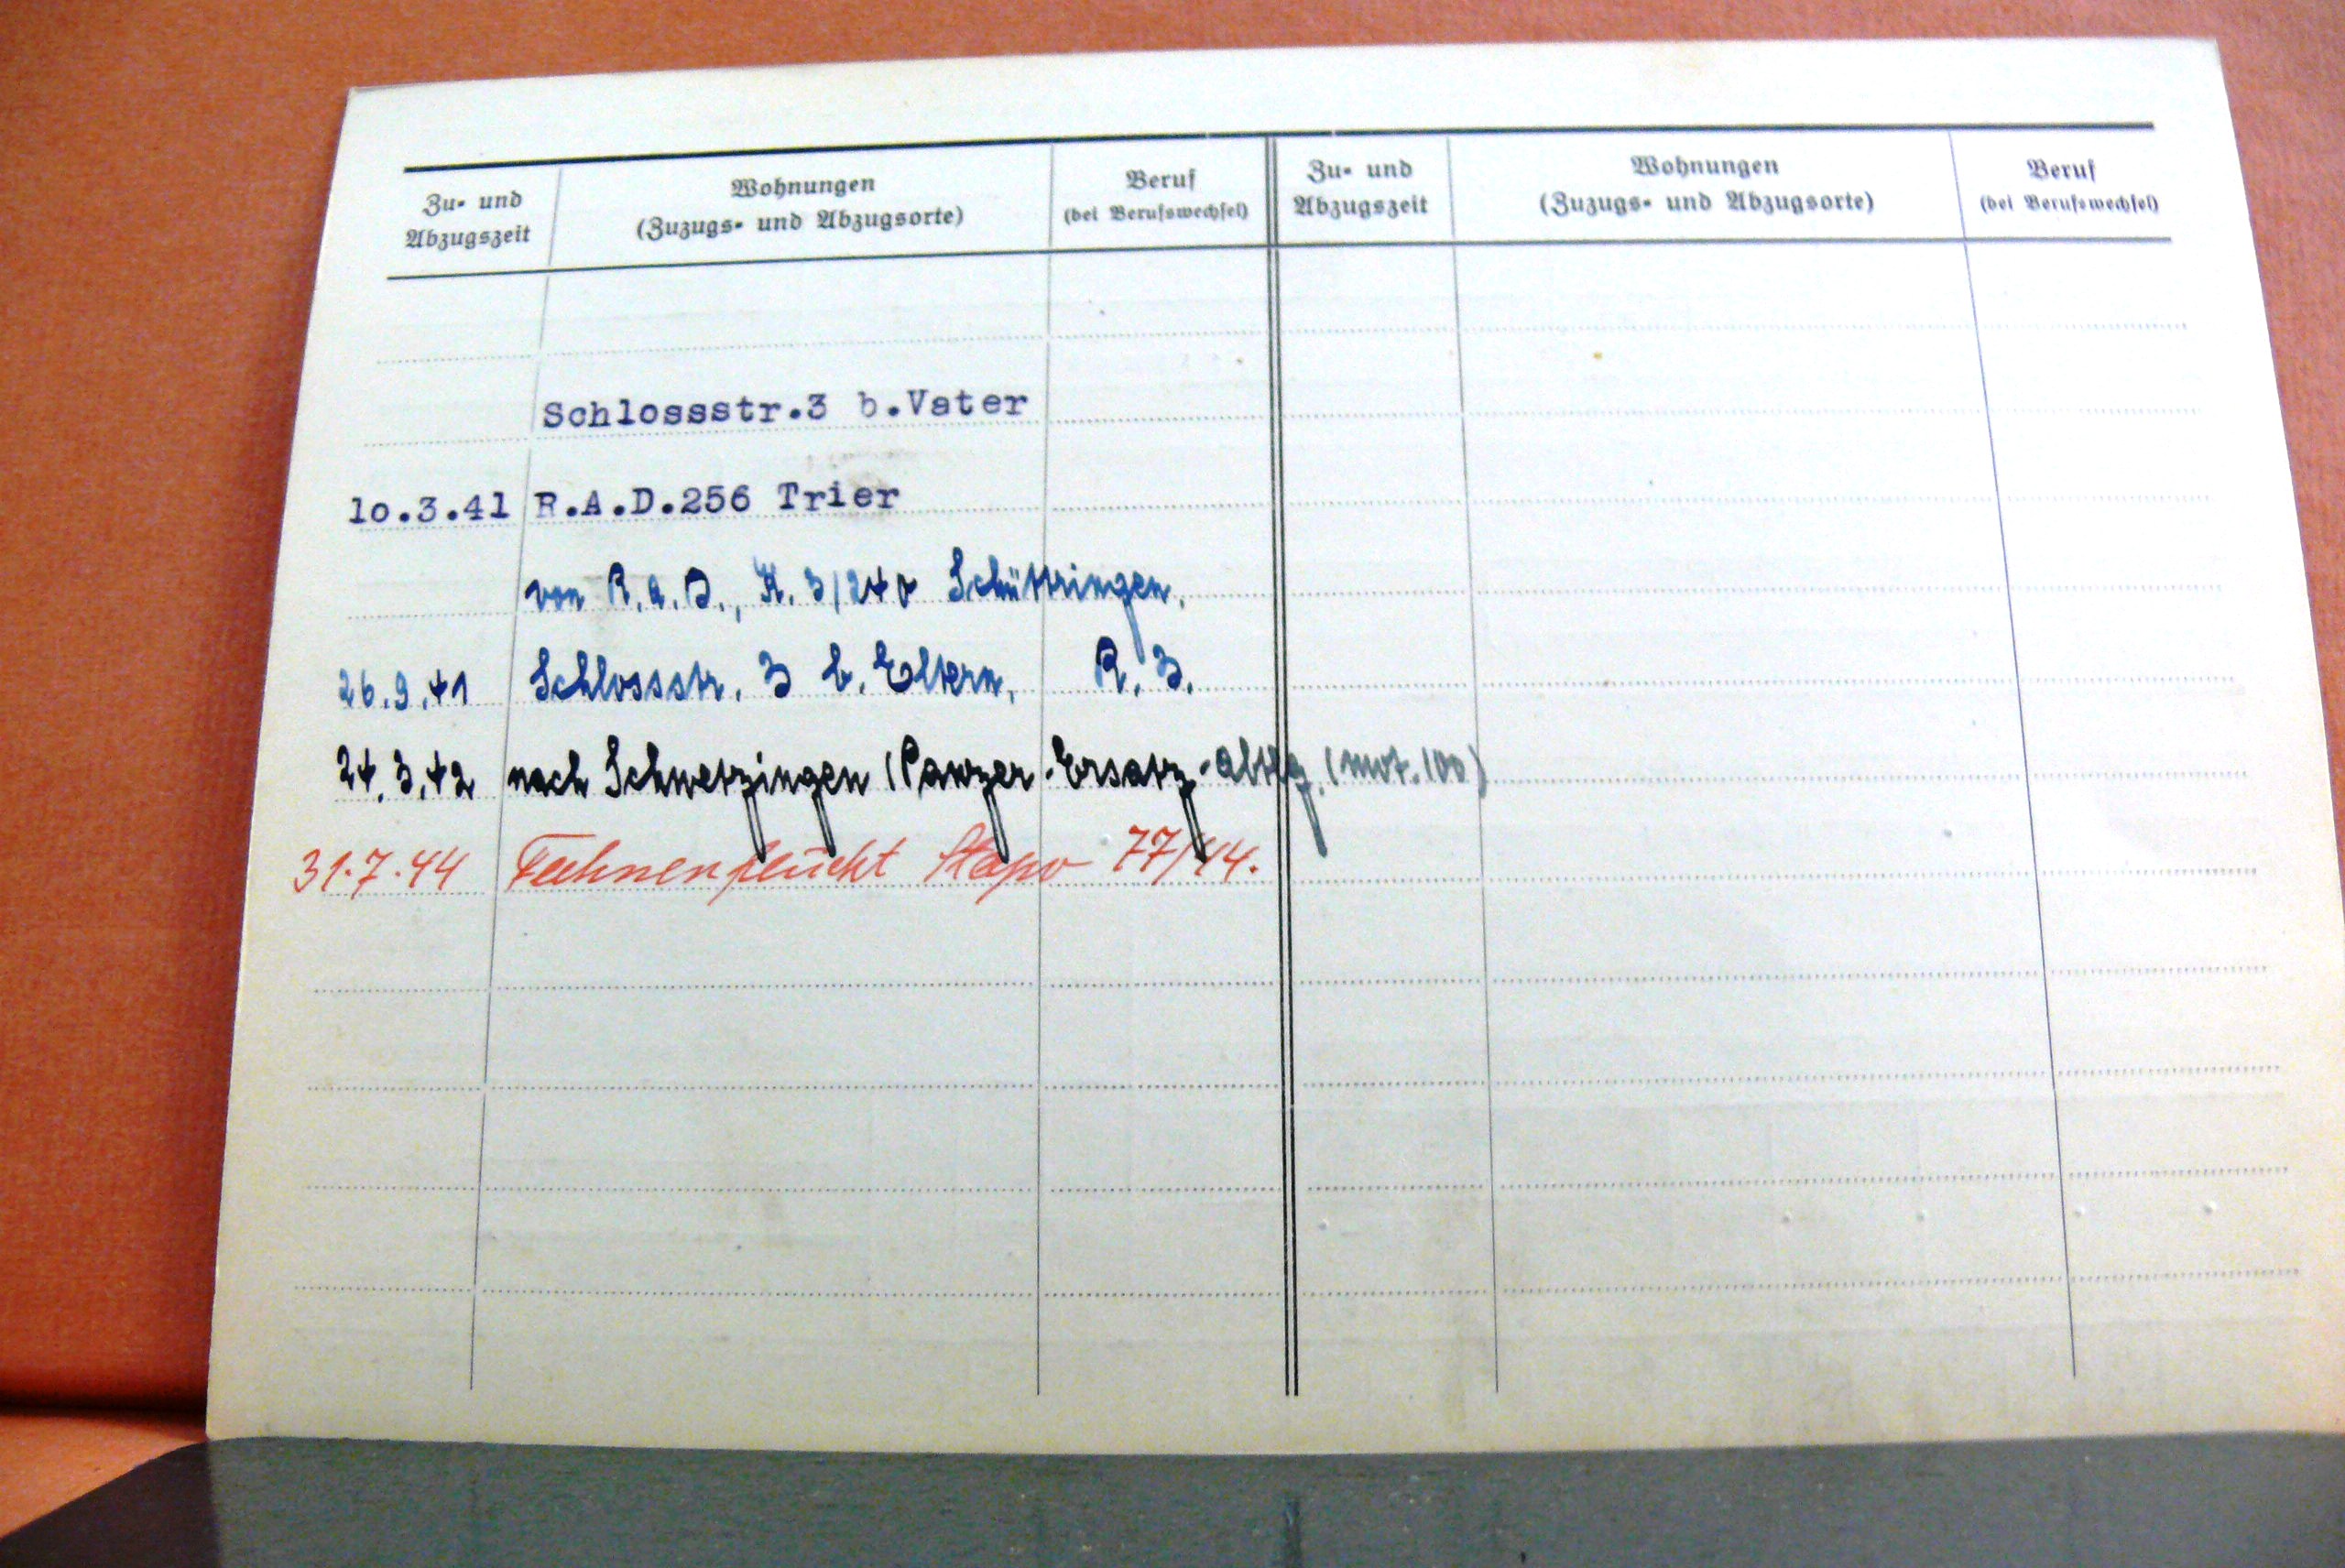 Zu- und Abzugszeit
Wohnungen
(Zuzugs- und Abzugsorte)
Beruf
(bei Berufswechsel)
Zu- und Abzugszeit
Wohnungen
(Zuzugs- und Abzugsorte)
Beruf
(bei Berufswechsel)
Schlossstr.3 b.Vater
10.3.41 R.A.D.256 Trier
von R.A.D., K. 3/240 Schüttringen.
26.9.41 Schlossstr. 3 b. Eltern, R. 3.
24.3.42 nach Schwetzingen (Panzer-Ersatz-Abtlg. (mot. 100)
31.7.44 Fahnenflucht Stapo 77/44.